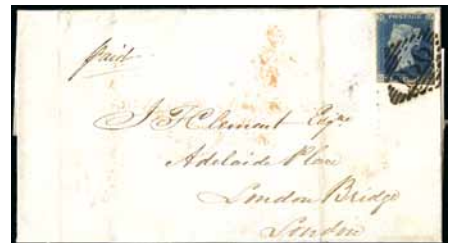 POSTAGE
paid
J F Clement Esqre
Adelaide Place
London Bridge
London